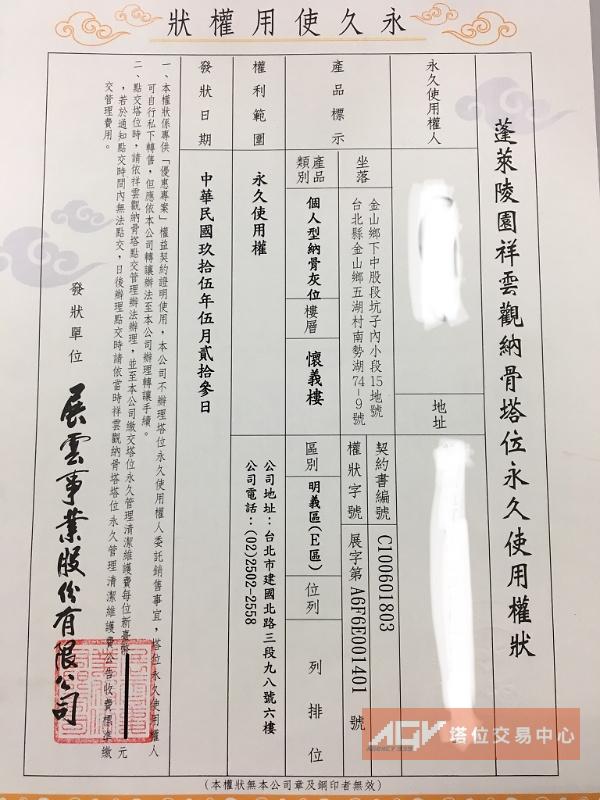 永久使用權狀
蓬萊陵園祥雲觀納骨塔位永久使用權狀
永久使用權人
地址
產品標示
坐落
金山鄉下中股段坑子內小段15地號
台北縣金山鄉五湖村南勢湖74-9號
契約書編號
C100601803
權狀字號
展字第A6F6E001401號
產品類別
個人型納骨灰位
樓層
懷義樓
區別
明義區(E區)
位列
列 排 位
權利範圍
永久使用權
公司地址:台北市建國北路三段九八號六樓
公司電話:(02)2502-2558
發狀日期
中華民國玖拾伍年伍月貳拾參日
一、本權狀係專供「優惠專案」權益契約證明使用,本公司不辦理塔位永久使用權人委託銷售事宜,塔位永久使用權人
可自行私下轉售,但應依本公司轉讓辦法至本公司辦理轉讓手續。
二、點交塔位時,請依祥雲觀納骨塔點交管理辦法辦理,並至本公司繳交塔位永久管理清潔維護費每位新臺幣 元
,若於通知點交時間內無法點交,日後辦理點交時請依當時祥雲觀納骨塔塔位永久管理清潔維護費公告收費標準繳
交管理費用。
發狀單位
展雲事業股份有限公司
(本權狀無本公司章及鋼印者無效)
AGV 塔位交易中心